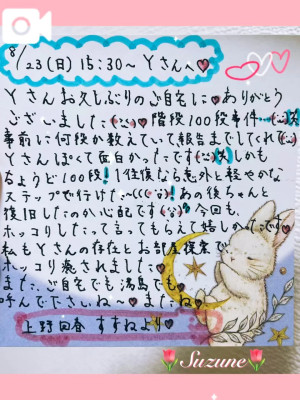 8/23(日)15:30~Yさん♥
Yさんお久しぶりのご自宅に♥ありがとう
ございました♥階段100段事件…笑
事前に何段か数えていて報告までしてくれて
Yさんぽくて面白かったです笑しかも
ちょうど100段!1往復なら意外と軽やかな
ステップで行けた~!あの後ちゃんと
復旧したのか心配です 今回も
ホッコリしたって言ってもらえて嬉しかったです♥
私もYさんの存在とお部屋で
ホッコリ癒されました♥
また、ご自宅でも湯島でも
呼んで下さいね~♥またね♥
上野回春 すずねより♥
Suzune